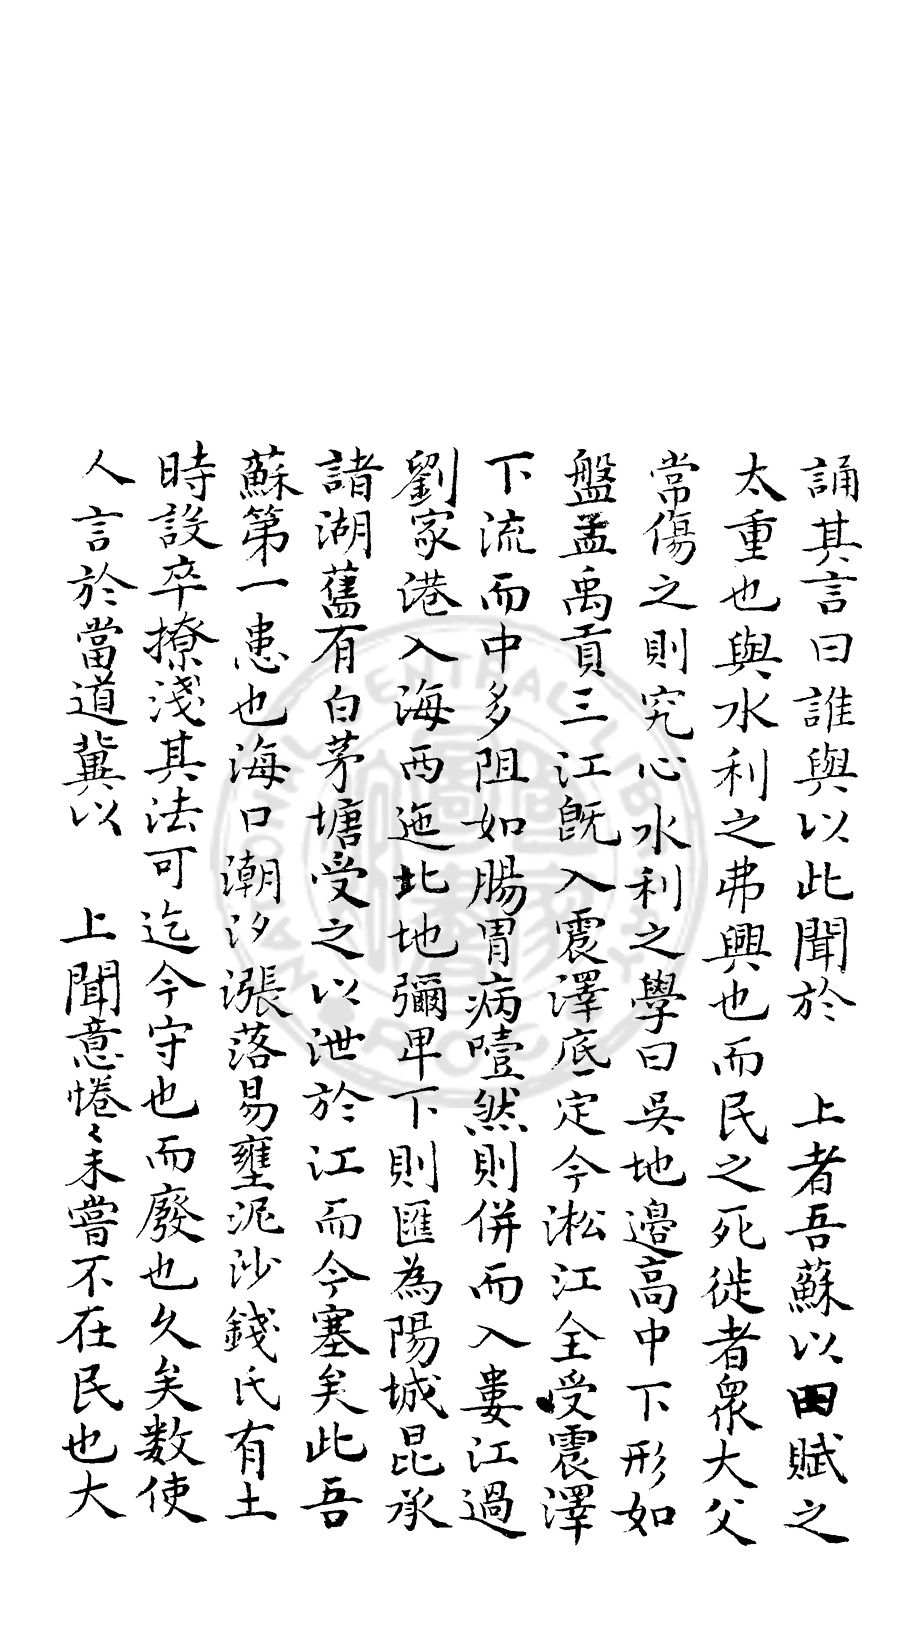 誦其言曰誰與以此聞於　上者吾蘇以田賦之
太重也與水利之弗興也而民之死徙者眾大父
常傷之則究心水利之學曰吳地邉高中下形如
盤盂禹貢三江旣入震澤底定今淞江全受震澤
下流而中多阻如腸胃病噎然則併而入婁江過
劉家港入海西迤北地彌卑下則匯為陽城昆承
諸湖舊有白茅塘受之以泄於江而今塞矣此吾
蘇第一患也海口潮汐漲落易壅泥沙錢氏有土
時設卒撩淺其法可迄今守也而廢也久矣数使
人言於當道冀以　上聞意惓〻未嘗不在民也大